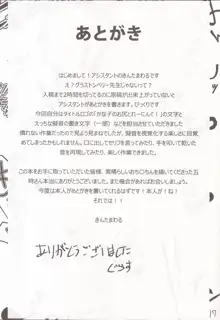 あとがき
はじめまして！アシスタントのきんたまわるです
え？グラストンベリー先生じゃないって？
入稿まで2時間を切ってるのに原稿が出来上がっていないと
アシスタントがあとがきを書きます。びっくりです
今回自分はタイトルロゴの「かな子のお尻とれーにんぐ！」の文字と
えっちな擬音の書き文字（一部）などを担当させていただきました
慣れない作業だったので見よう見まねでしたが、擬音を視覚化する楽しさに目覚
めてしまったかもしれません。口に出してセリフを言ってみたり、手を叩いて乾いた
音を再現してみたり、楽しく作業できました。
この本を手に取っていただいた皆様、素晴らしいおちんちんを描いてくださった五
時さん本当にありがとうございました。また機会があればお会いしましょう。
今度は本人があとがきを書いてくれるはずです！本人が！ね！
それでは！！
きんたまわる
ありがとうございました
19